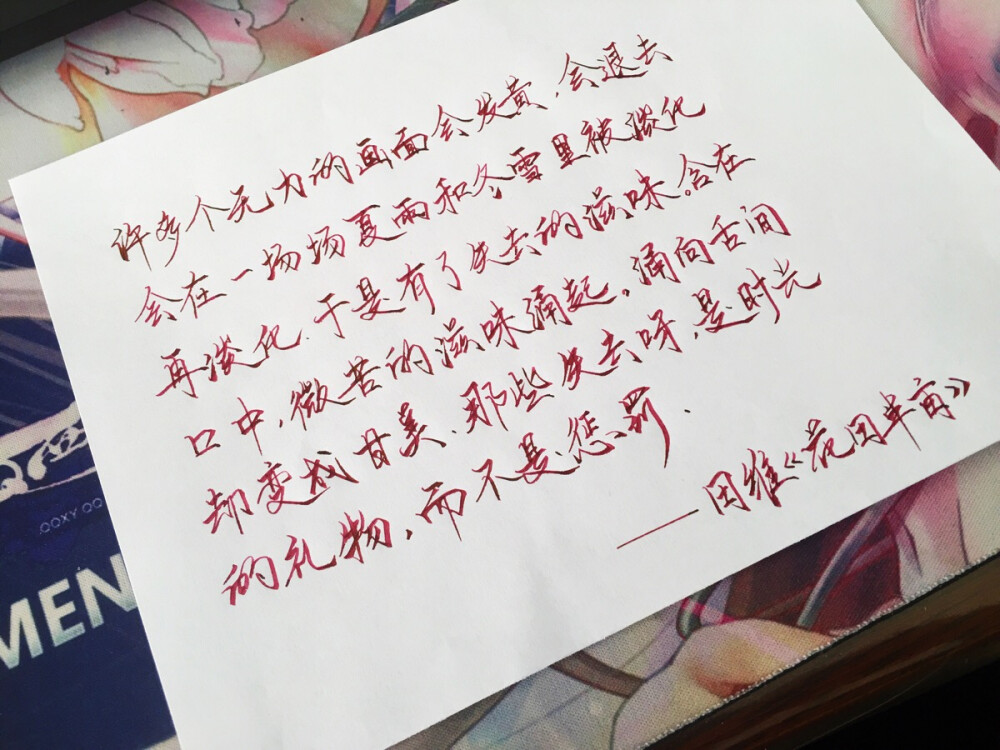 许多个无力的画面会发黄,会退去
会在一场场夏雨和冬雪里被淡化
再淡化.于是有了失去的滋味。含在
口中,微苦的滋味涌起。涌向舌间
却变成甘美.那些失去呀,是时光
的礼物,而不是惩罚.
——田维《花田半亩》
QQXY QQ
MEN